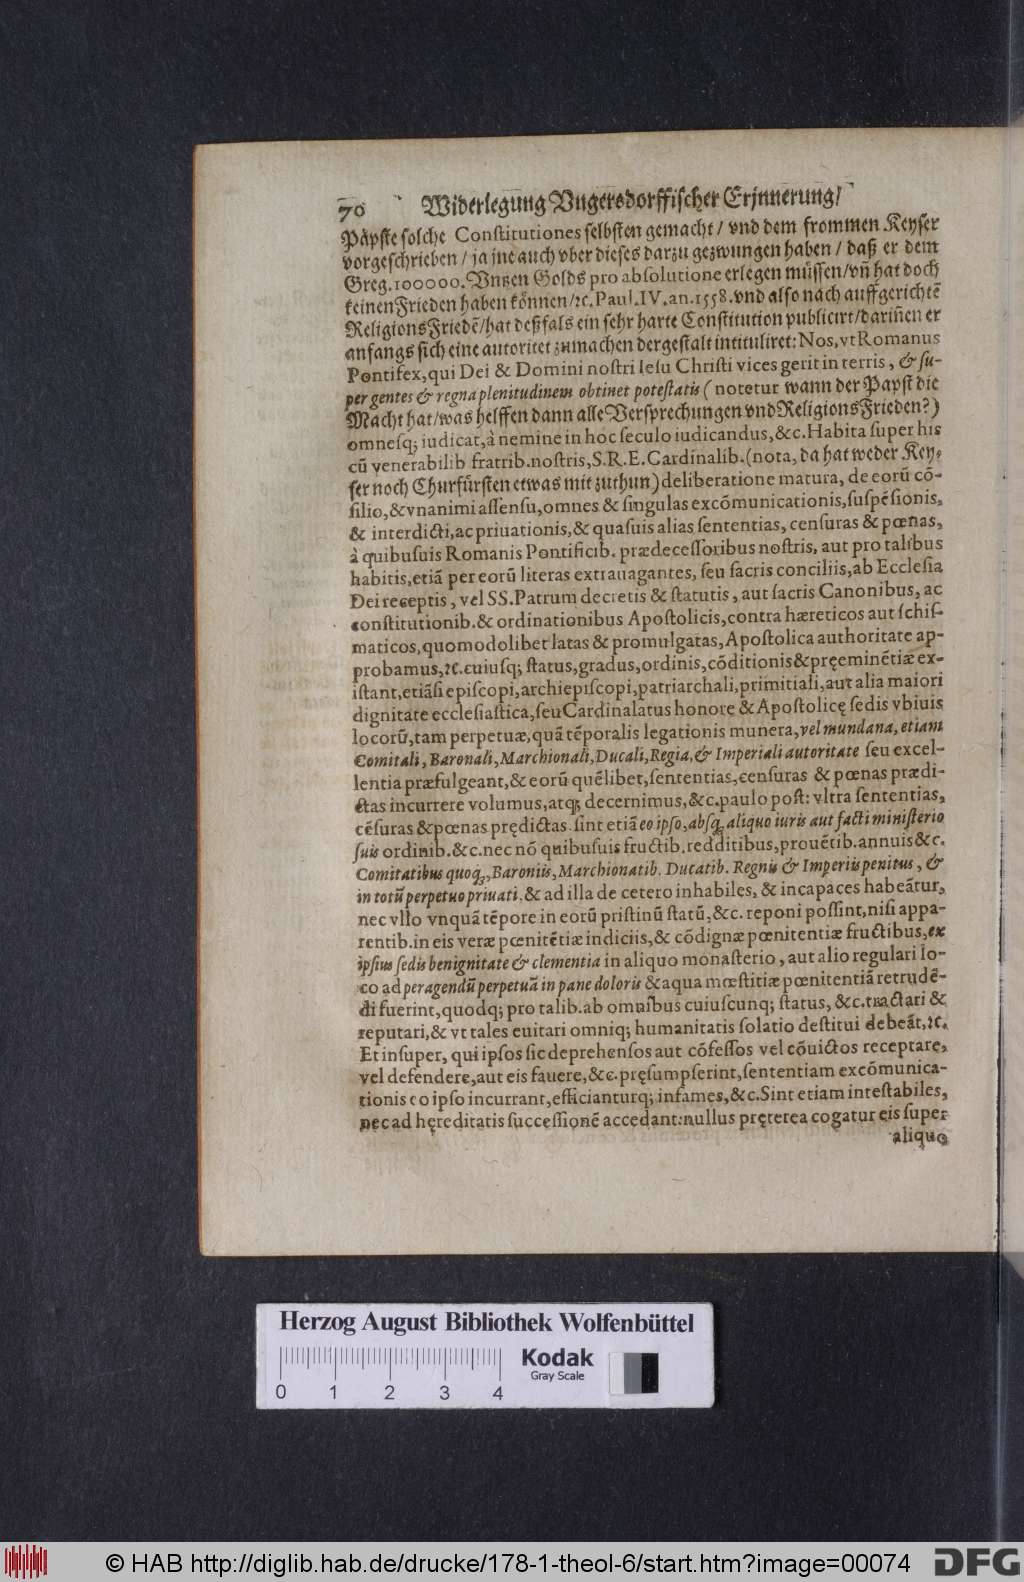 70 Widerlegung Vngersdorffischer Erjnnerung/
Päpste solche Constitutiones selbsten gemacht / vnd dem frommen Keyser
vorgeschrieben / ja jne auch vber dieses darzu gezwungen haben / daß er dem
Greg. 100000. Vntzen Golds pro absolutione erlegen müssen/vn̄ hat doch
keinen Frieden haben können/ꝛc. Paul. IV. an. 1558. vnd also nach auffgerichtē
ReligionsFriedē/hat deßfals ein sehr harte Constitution publicirt/darinen er
anfangs sich eine autoritet zumachen dergestalt intituliret: Nos, vt Romanus
Pontifex, qui Dei & Domini nostri Iesu Christi vices gerit in terris, & su-
per gentes & regna plenitudinem obtinet potestatis ( notetur wann der Papst die
Macht hat/was helffen dann alle Versprechungen vnd ReligionsFrieden?)
omnesq; iudicat, à nemine in hoc seculo iudicandus, &c. Habita super his
cū venerabilib fratrib. nostris, S. R. E. Cardinalib. (nota, da hat weder Key-
ser noch Churfürsten etwas mit zuthun) deliberatione matura, de eorū cō-
silio, & vnanimi assensu, omnes & singulas excōmunicationis, suspēsionis,
& interdicti, ac priuationis, & quasuis alias sententias, censuras & pœnas,
à quibusuis Romanis Pontificib. prædecessoribus nostris, aut pro talibus
habitis, etiā per eorū literas extrauagantes, seu sacris conciliis, ab Ecclesia
Dei receptis, vel SS. Patrum decretis & statutis, aut sactis Canonibus, ac
constitutionib. & ordinationibus Apostolicis, contra hæreticos aut schis-
maticos, quomodolibet latas & promulgatas, Apostolica authoritate ap-
probamus, ꝛc. cuiusq; status, gradus, ordinis, cōditionis & pręeminētiæ ex-
istant, etiāsi episcopi, archiepiscopi, patriarchali, primitiali, aut alia maiori
dignitate ecclesiastica, seu Cardinalatus honore & Apostolicę sedis vbiuis
locorū, tam perpetuæ, quā tēporalis legationis munera, vel mundana, etiam
Comitali, Baronali, Marchionali, Ducali, Regia, & Imperiali autoritate seu excel-
lentia præfulgeant, & eorū quēlibet, sententias, censuras & pœnas prædi-
ctas incurrere volumus, atq; decernimus, &c. paulo post: vltra sententias,
cēsuras & pœnas prędictas. sint etiā eo ipso, absq; aliquo iuris aut facti ministerio
suis ordinib. &c. nec nō quibusuis fructib. redditibus, prouētib. annuis &c.
Comitatibus quoq;, Baroniis, Marchionatib. Ducatib. Regnis & Imperiis penitus, &
in totū perpetuo priuati. & ad illa de cetero inhabiles, & incapaces habeātur,
nec vllo vnquā tēpore in eorū pristinū statū, &c. reponi possint, nisi appa-
rentib. in eis veræ pœnitētiæ indiciis, & cōdignæ pœnitentiæ fructibus, ex
ipsius sedis benignitate & clementia in aliquo monasterio, aut alio regulari lo-
co ad peragendū perpetuā in pane doloris & aqua mœstitiæ pœnitentiā retrudē-
di fuerint, quodq; pro talib. ab omnibus cuiuscunq; status, &c. tractari &
reputari, & vt tales euitari omniq; humanitatis solatio destitui debeāt, ꝛc.
Et insuper, qui ipsos sic deprehensos aut cōfessos vel cōuictos receptare,
vel defendere, aut eis fauere, &c. pręsumpserint, sententiam excōmunica-
tionis eo ipso incurrant, efficianturq; infames, &c. Sint etiam intestabiles,
nec ad hęreditatis successionē accedant: nullus pręterea cogatur eis super
aliquo
Herzog August Bibliothek Wolfenbüttel
Kodak
Gray Scale
0 1 2 3 4
© HAB http://diglib.hab.de/drucke/178-1-theol-6/start.htm?image=00074
DFG